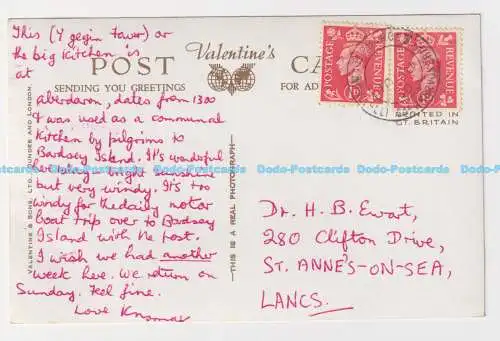 This (Y gegin fawr) or
the big kitchen is
at
aberdaron, dates from 1300
& was used as a communal
kitchen by pilgrims to
Bardsey Island. It's wonderful
bright sunshine
but very windy. It's too
windy for the daily motor
boat trip over to Bardsey
Island with the post.
I wish we had another
week here. We return on
Sunday. Feel fine.
Love
Valentine's
POST CA
SENDING YOU GREETINGS
FOR AD
POSTAGE REVENUE
POSTAGE REVENUE
PRINTED IN
GT. BRITAIN
VALENTINE & SONS, LTD., DUNDEE AND LONDON.
THIS IS A REAL PHOTOGRAPH
Dr. H. B. Ewart,
280 Clifton Drive,
ST. ANNE'S-ON-SEA,
LANCS.
Dodo-Postcards Dodo-Postcards Dodo-Postcards Dodo-Postcards Dodo-Postcards